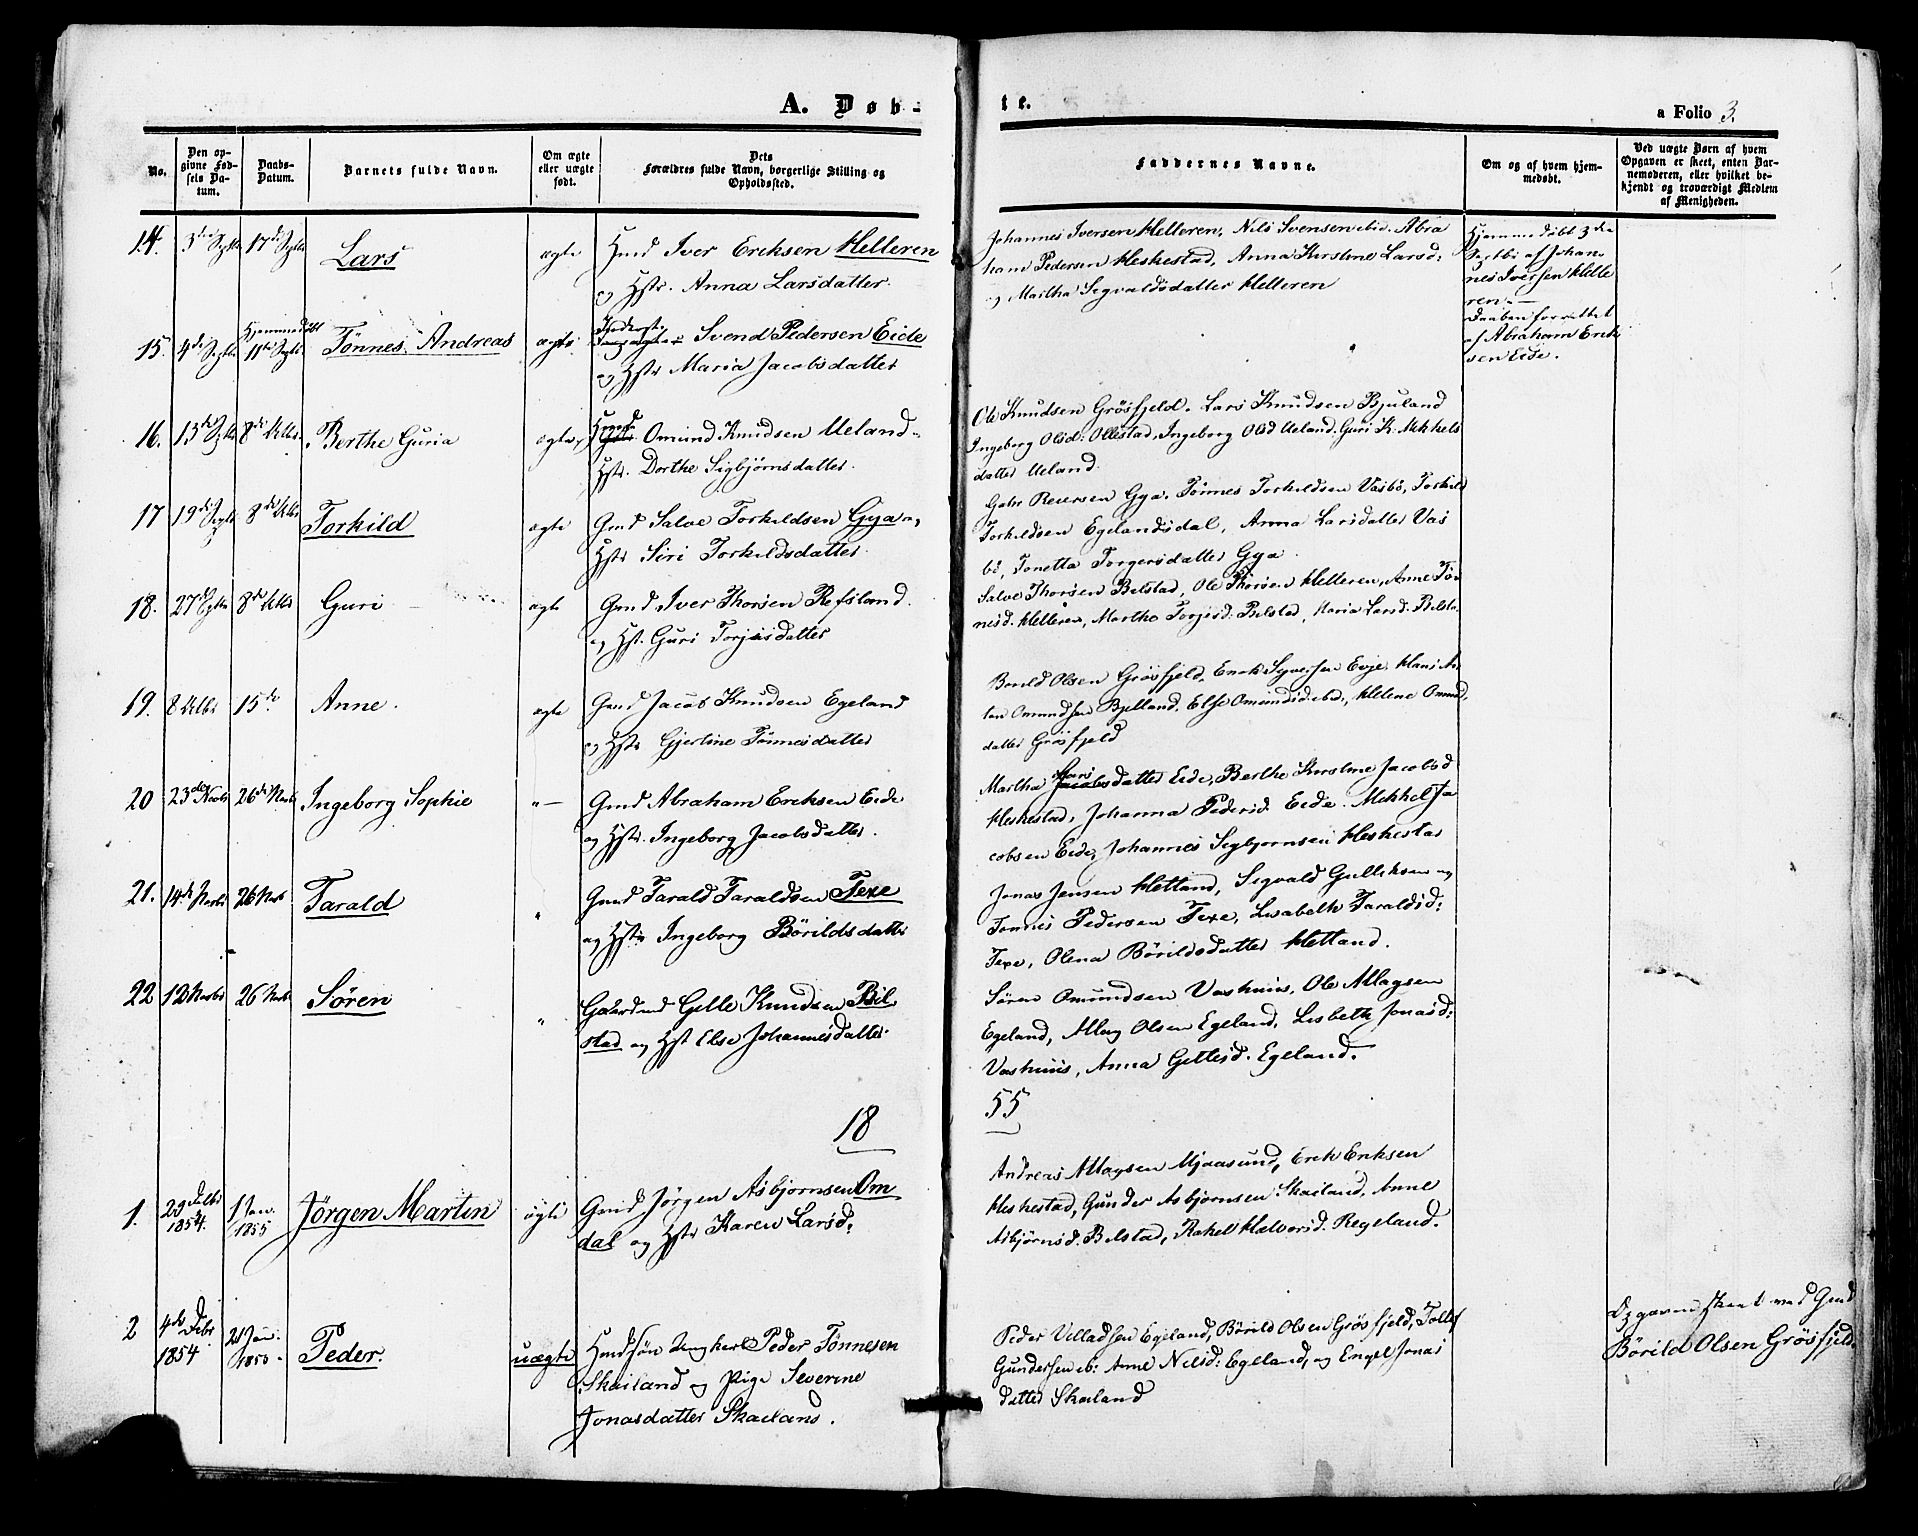 A. Døb-
te.
a Folio 3.
No.
Den op-
givne Fød-
sels Da-
tum.
Daabs-
Datum.
Barnets fulde Navn.
Om ægte
eller uægte
født.
Dets
Forældres fulde Navn, borgerlige Stilling og
Opholdssted.
Faddernes Navne.
Om og af hvem hjem-
medøbt.
Ved uægte Børn af hvem
Opgaven er skeet, enten Bar-
nemoderen, eller hvilket be-
kjendt og troværdigt Medlem
af Menigheden.
14. 3die Septbr 17de Septbr Lars ægte Gmd Iver Ericksen Helleren
og Hstr. Anna Larsdatter.
Johannes Iversen Helleren, Nils Svensen ibid. Abra
ham Pedersen Heskestad, Anna Kirstine Larsd:
og Martha Segvaldsdatter Helleren
Hjemmedøbt 3die
Septbr af Johan-
nes Iversen Helle
ren.
15. 4de Septbr Hjemmedøbt
11te Septbr Tönnes Andreas ægte Svend Pedersen Eide
og Hstr Maria Jacobsdatter
Daaben forrettet
af Abraham Erick
sen Eide.
16. 13de Septbr 8de Octbr. Berthe Guria ægte Omund Knudsen Ueland
Hstr. Dorthe Sigbjørnsdatter.
Ole Knudsen Grösfjeld. Lars Knudsen Bjuland
Ingeborg Olsd: Ollestad, Ingeborg Olsd Ueland. Guri K. Mikkels
datter Ueland.
17 19de Septbr 8de Octbr Torkild ægte Gmd Salve Torkildsen Gya og
Hstr Siri Torkildsdatter.
Gabr. Reiersen Gya. Tönnes Torkildsen Vasbö, Torkild
Torkildsen Egelandsdal, Anna Larsdatter Vas
bö, Tonetta Torgersdatter Gya.
18. 27de Septbr 8de Octbr Guri ægte Gmd Iver Thorsen Refsland.
og Hst. Guri Torjusdatter
Salve Thorsen Bilstad, Ole Thorsen Helleren, Anne Tön
nesd. Helleren, Martha Torjusd. Bilstad, Maria Larsd. Bilsta
19. 8 Octbr 15de Anne. ægte Gmd Jacob Knudsen Egeland
og Hstr Gjertine Tönnesdatter
Borild Olsen Grösfjeld, Erick Syversen Evje, Hans
Omundsen Bjelland. Else Omundsd. ibd., Helene Omund
datter Grösfjeld
20 23de Novbr 26de Novbr Ingeborg Sophie "— Gmd Abraham Ericksen Eide
og Hstr. Ingeborg Jacobsdatter.
Martha Larsdatter Eide, Berthe Kirstine Jacobsd
Heskestad, Johanna Pedersd. Eide. Mikkel Ja
cobsen Eide, Johannes Segbjornsen Heskestad
21. 14de Novbr 26 Novb Tarald " Gmd Tarald Taraldsen Texe
og Hstr Ingeborg Börildsdatter
Jonas Jensen Hetland, Segvald Gulliksen og
Tonnes Pedersen Texe, Lisabeth Taraldsd:
Texe, Olena Börildsdatter Hetland.
22 12 Novbr 26 Novbr Sören " Gaardmd Gitle Knudsen Bil
stad og Hst Else Johannesdatter.
Sören Omundsen Vashuus, Ole Atlagsen
Egeland, Atlag Olsen Egeland, Lisbeth Jonasd:
Vashuus, Anna Gitlesd. Egeland.
18
55
1. 29 Decbr
1854. 1 Jan.
1855 Jörgen Martin ægte Gmd Jörgen Asbjornsen Om
dal og Hstr Karen Larsd:
Andreas Atlagsen Mjaasund, Erick Ericksen
Heskestad, Gunder Asbjornsen Skailand, Anne
Asbjörnsd. Bilstad, Rakel Halvorsd. Regeland.
2 4de Debr
1854 21 Jan.
1855. Peder. uægte Gmdsön Ungkarl Peder Tönnesen
Skailand og Pige Severine
Jonasdatter Skailand.
Peder Villadsen Egeland, Börild Olsen Grösfjeld, Tollef
Gundersen ib: Anne Nilsd: Egeland, og Engel Jonas
datter Skailand
Opgaven skeet ved Gmd
Börild Olsen Grösfjeld.